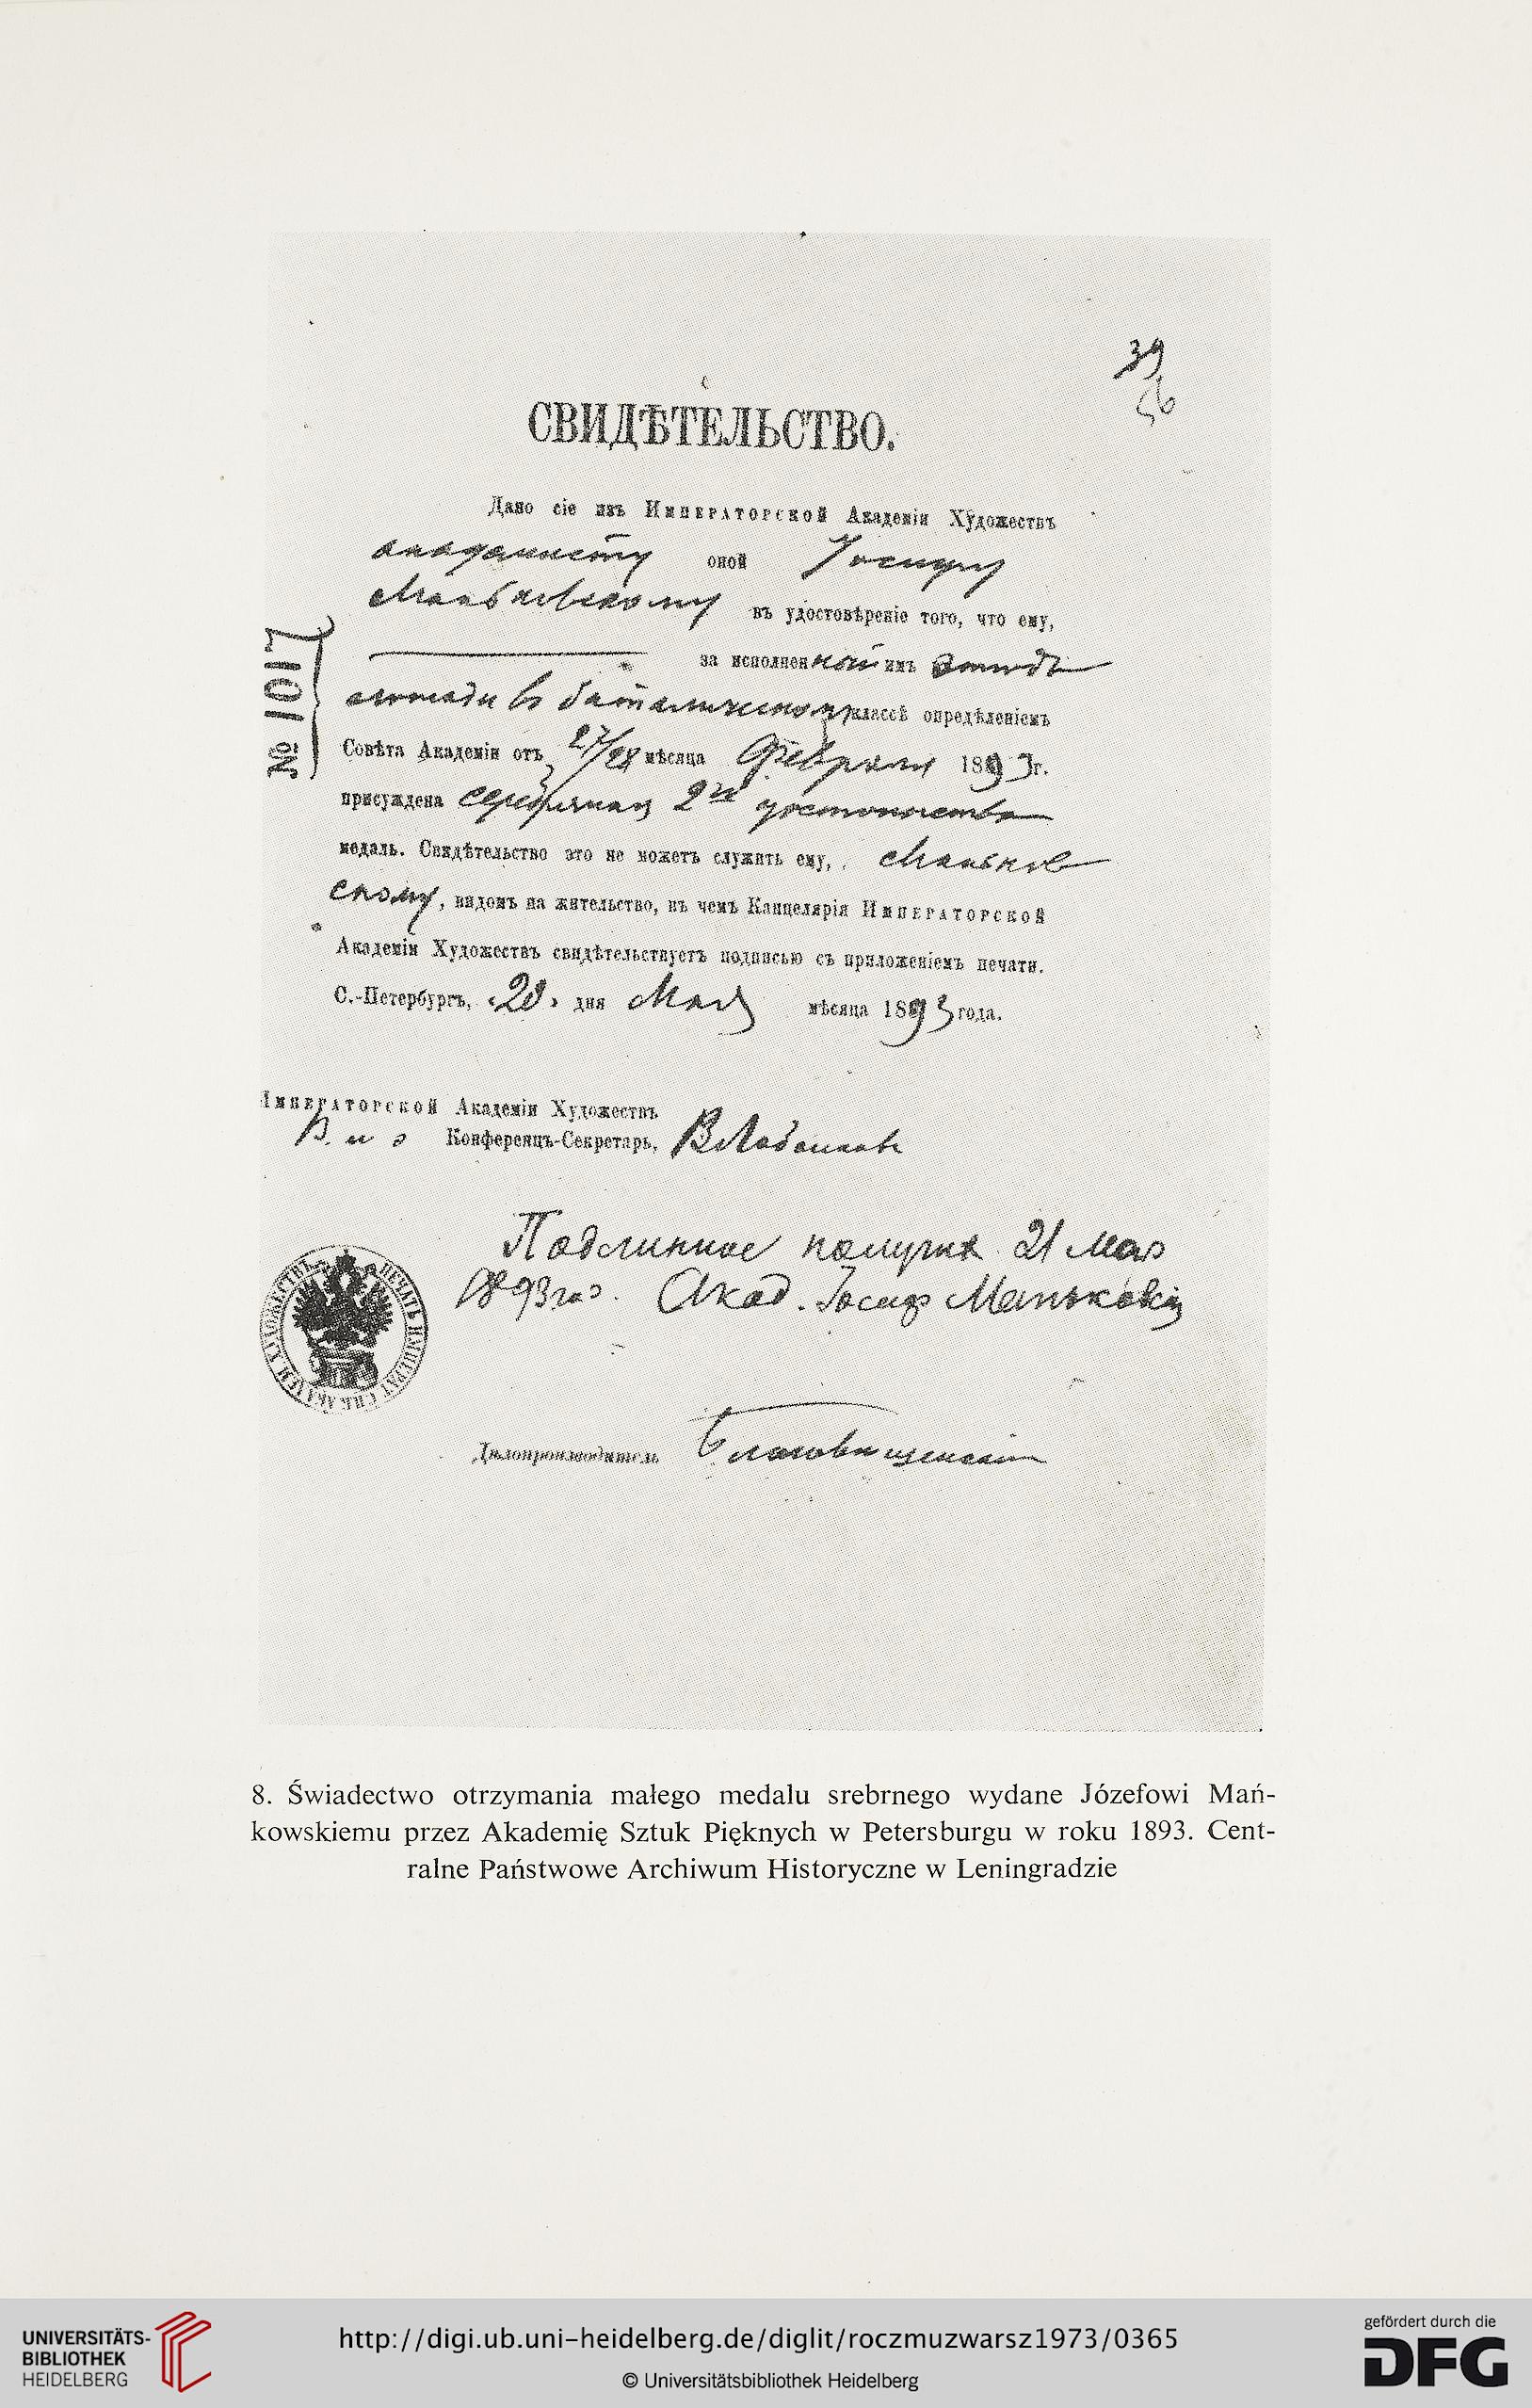 39
56
СВИДѢТЕЛЬСТВО.
Дано сіе изъ Императорской Академіи Художествъ
академисту оной Іосифу
Маньковскому въ удостовѣреніе того, что ему,
за исполненный имъ этюдъ
лошади въ баталическомъ классѣ опредѣленіемъ
Совѣта Академіи отъ 27/28 мѣсяца Февраля 1893 г.
присуждена серебряная 2й достоинства
медаль. Свидѣтельство это не можетъ служить ему, Маньков
скому, видомъ на жительство, въ чемъ Канцелярія Императорской
Академіи Художествъ свидѣтельствуетъ подписью съ приложеніемъ печати.
С.-Петербургъ, «20» дня Мая мѣсяца 1893 года.
№ 1017
Императорской Академіи Художествъ
В. и д Конференцъ-Секретарь,
Подлинное получил 21 Мая
1893 го. Акад. Іосиф Маньковскій
ПЕЧАТЬ ИМПЕРАТ СПБ АКАДЕМ ХУДОЖЕСТВЪ
Дѣлопроизводитель Благовѣщенскій
8. Świadectwo otrzymania małego medalu srebrnego wydane Józefowi Mań-
kowskiemu przez Akademię Sztuk Pięknych w Petersburgu w roku 1893. Cent-
ralne Państwowe Archiwum Historyczne w Leningradzie
UNIVERSITÄTS-
BIBLIOTHEK
HEIDELBERG
http://digi.ub.uni-heidelberg.de/diglit/roczmuzwarsz1973/0365
© Universitätsbibliothek Heidelberg
gefördert durch die
DFG